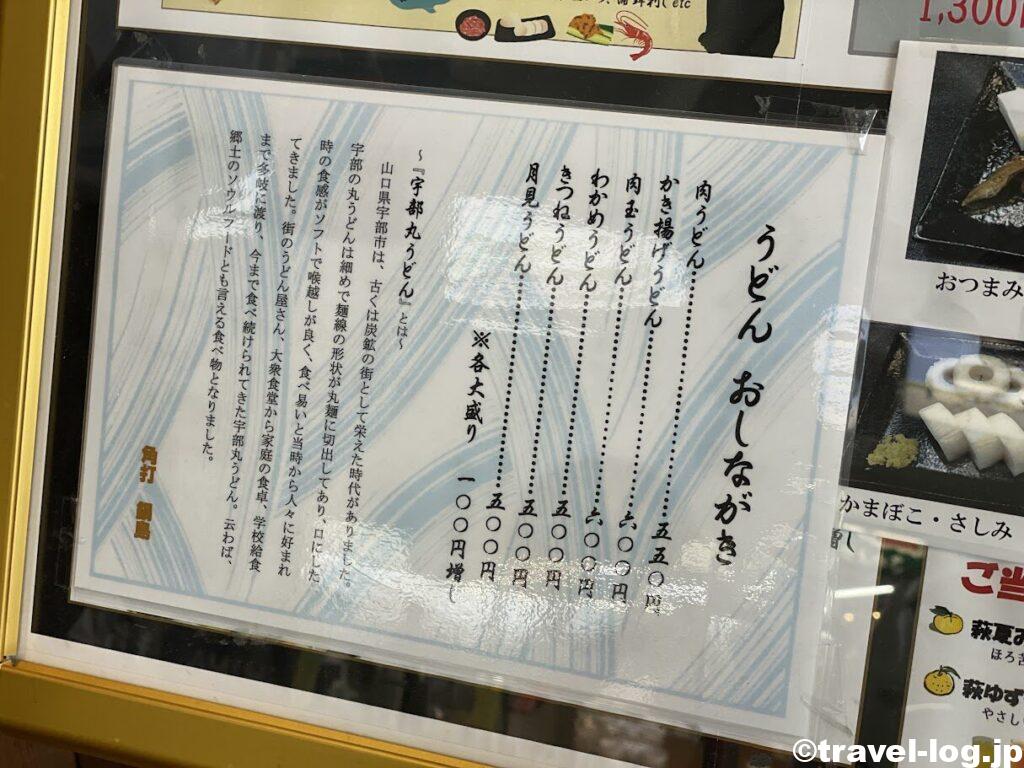 海鮮利し etc
1,300
うどん おしながき
肉うどん……五五〇円
かき揚げうどん……六〇〇円
肉玉うどん……六〇〇円
わかめうどん……五〇〇円
きつねうどん……五〇〇円
月見うどん……五〇〇円
※各大盛り 一〇〇円増し
～『宇部丸うどん』とは～
山口県宇部市は、古くは炭鉱の街として栄えた時代がありました。
宇部の丸うどんは細めで麺線の形状が丸麺に切出してあり、口にした
時の食感がソフトで喉越しが良く、食べ易いと当時から人々に好まれ
てきました。街のうどん屋さん、大衆食堂から家庭の食卓、学校給食
まで多岐に渡り、今まで食べ続けられてきた宇部丸うどん。云わば、
郷土のソウルフードとも言える食べ物となりました。
角打
おつまみ
かまぼこ・さしみ
ご当
萩夏み
ほろ苦
萩ゆず
やさし
©travel-log.jp